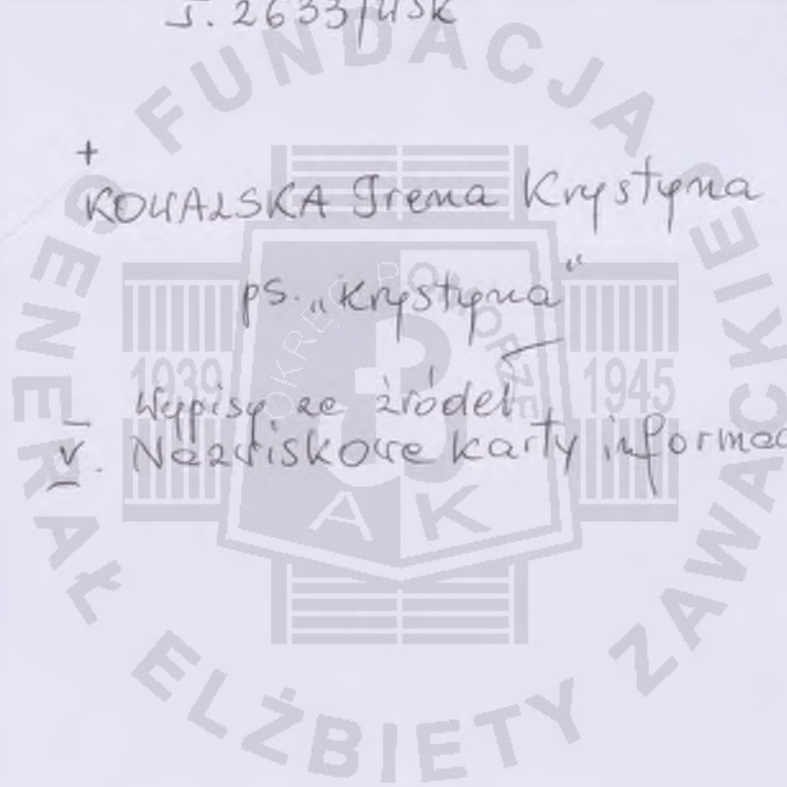 J. 2633/WSK
+
KOWALSKA Irena Krystyna
ps. „Krystyna"
Wypisy ze źródeł
V. Nazwiskowe karty informac
FUNDACJA GENERAŁ ELŻBIETY ZAWACKIEJ
OKRĘG POMORZE
1939 1945
AK